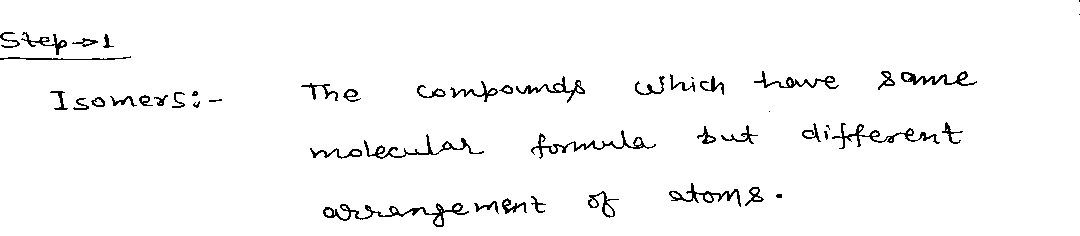 Step→1
Isomers:- The compounds which have same
molecular formula but different
arrangement of atoms.